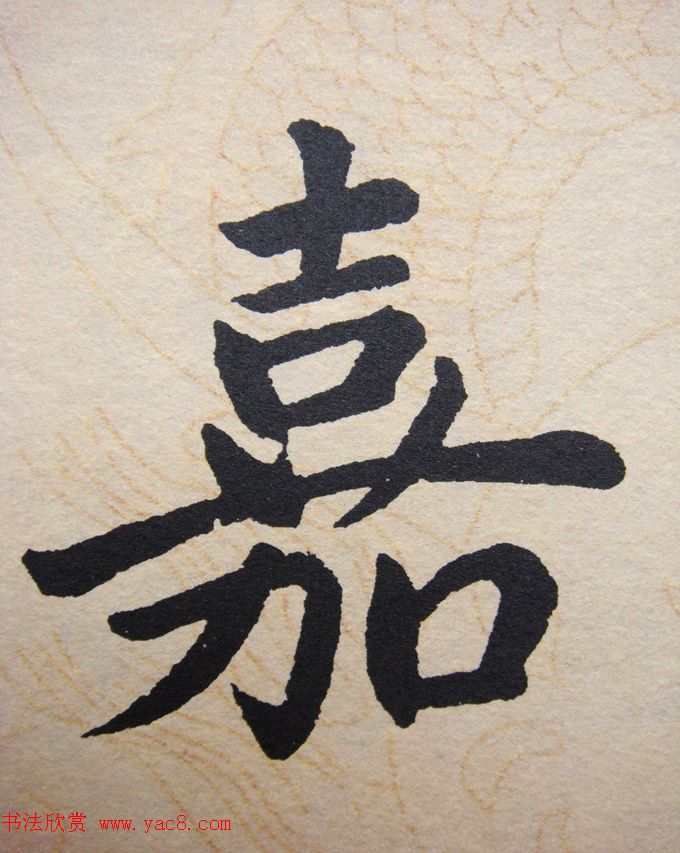 嘉
书法欣赏 www.yac8.com